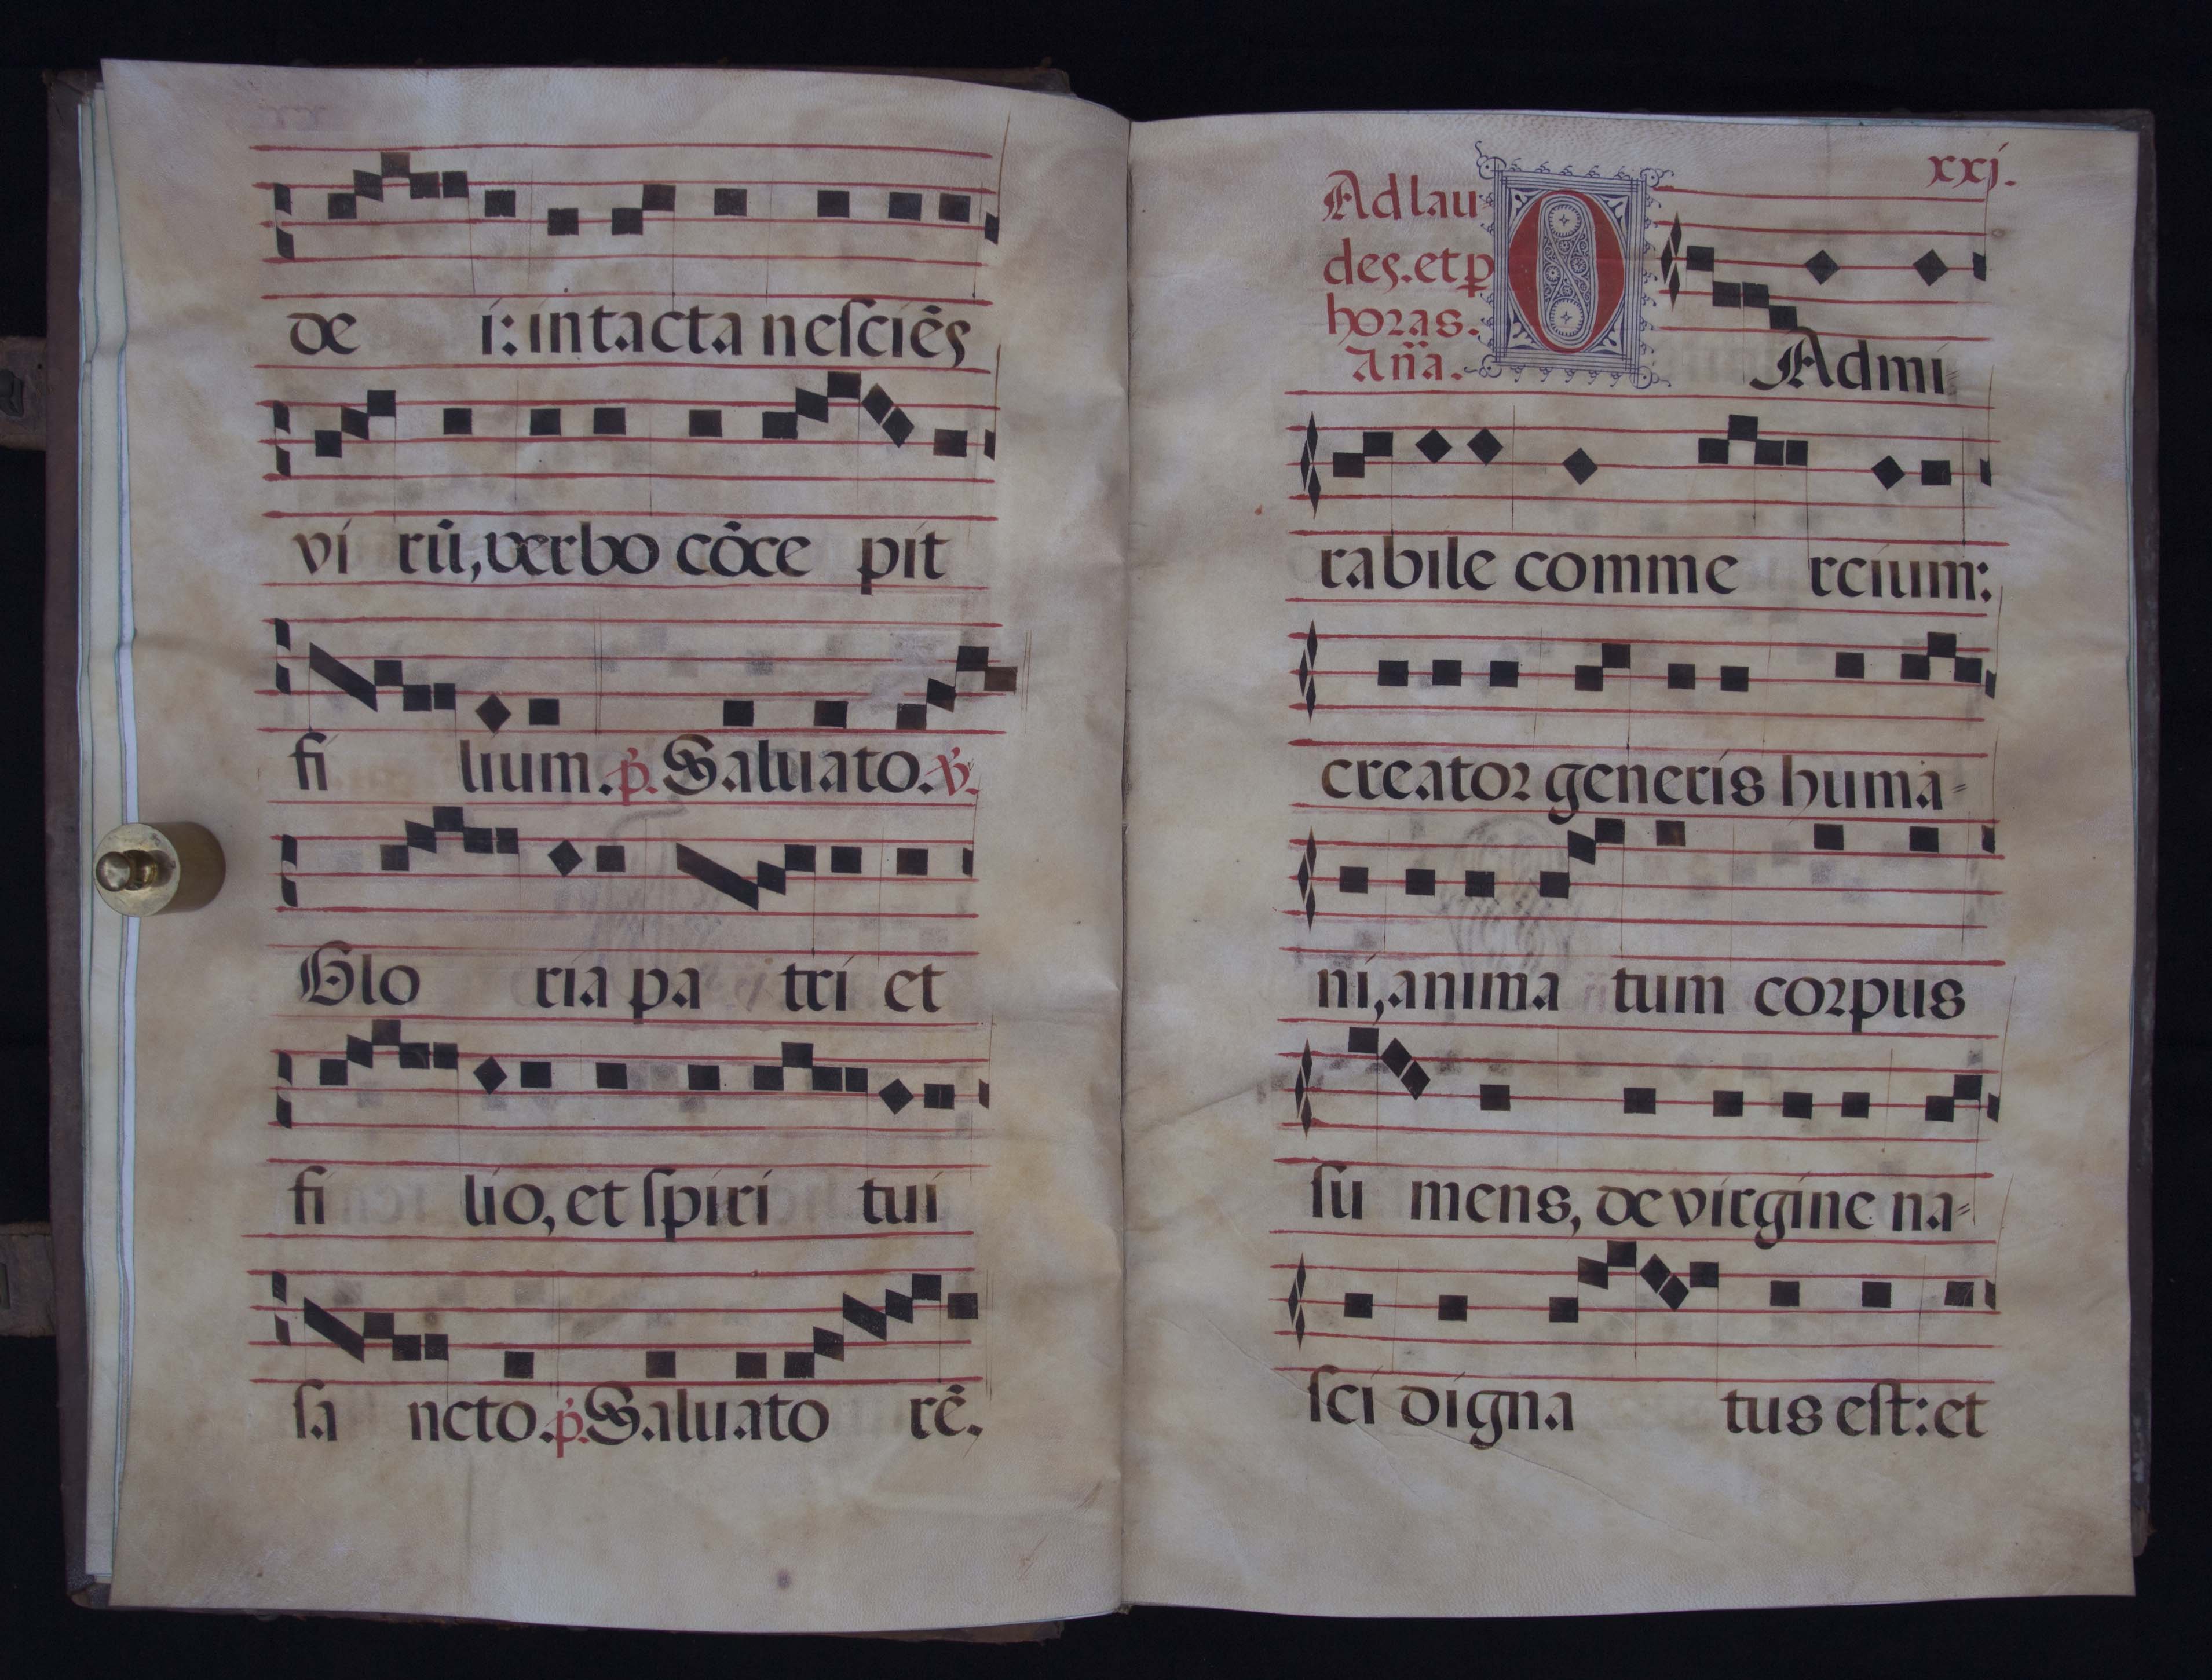 de i: intacta nesciēs
vi rū, verbo cōce pit
fi lium. p. Saluato. v.
Glo ria pa tri et
fi lio, et spiri tui
sa ncto. p. Saluato rē.
xxj.
Ad lau
des. et p
horas.
Aña.
O Admi
rabile comme rcium:
creator generis huma=
ni, anima tum corpus
su mens, de virgine na=
sci digna tus est: et